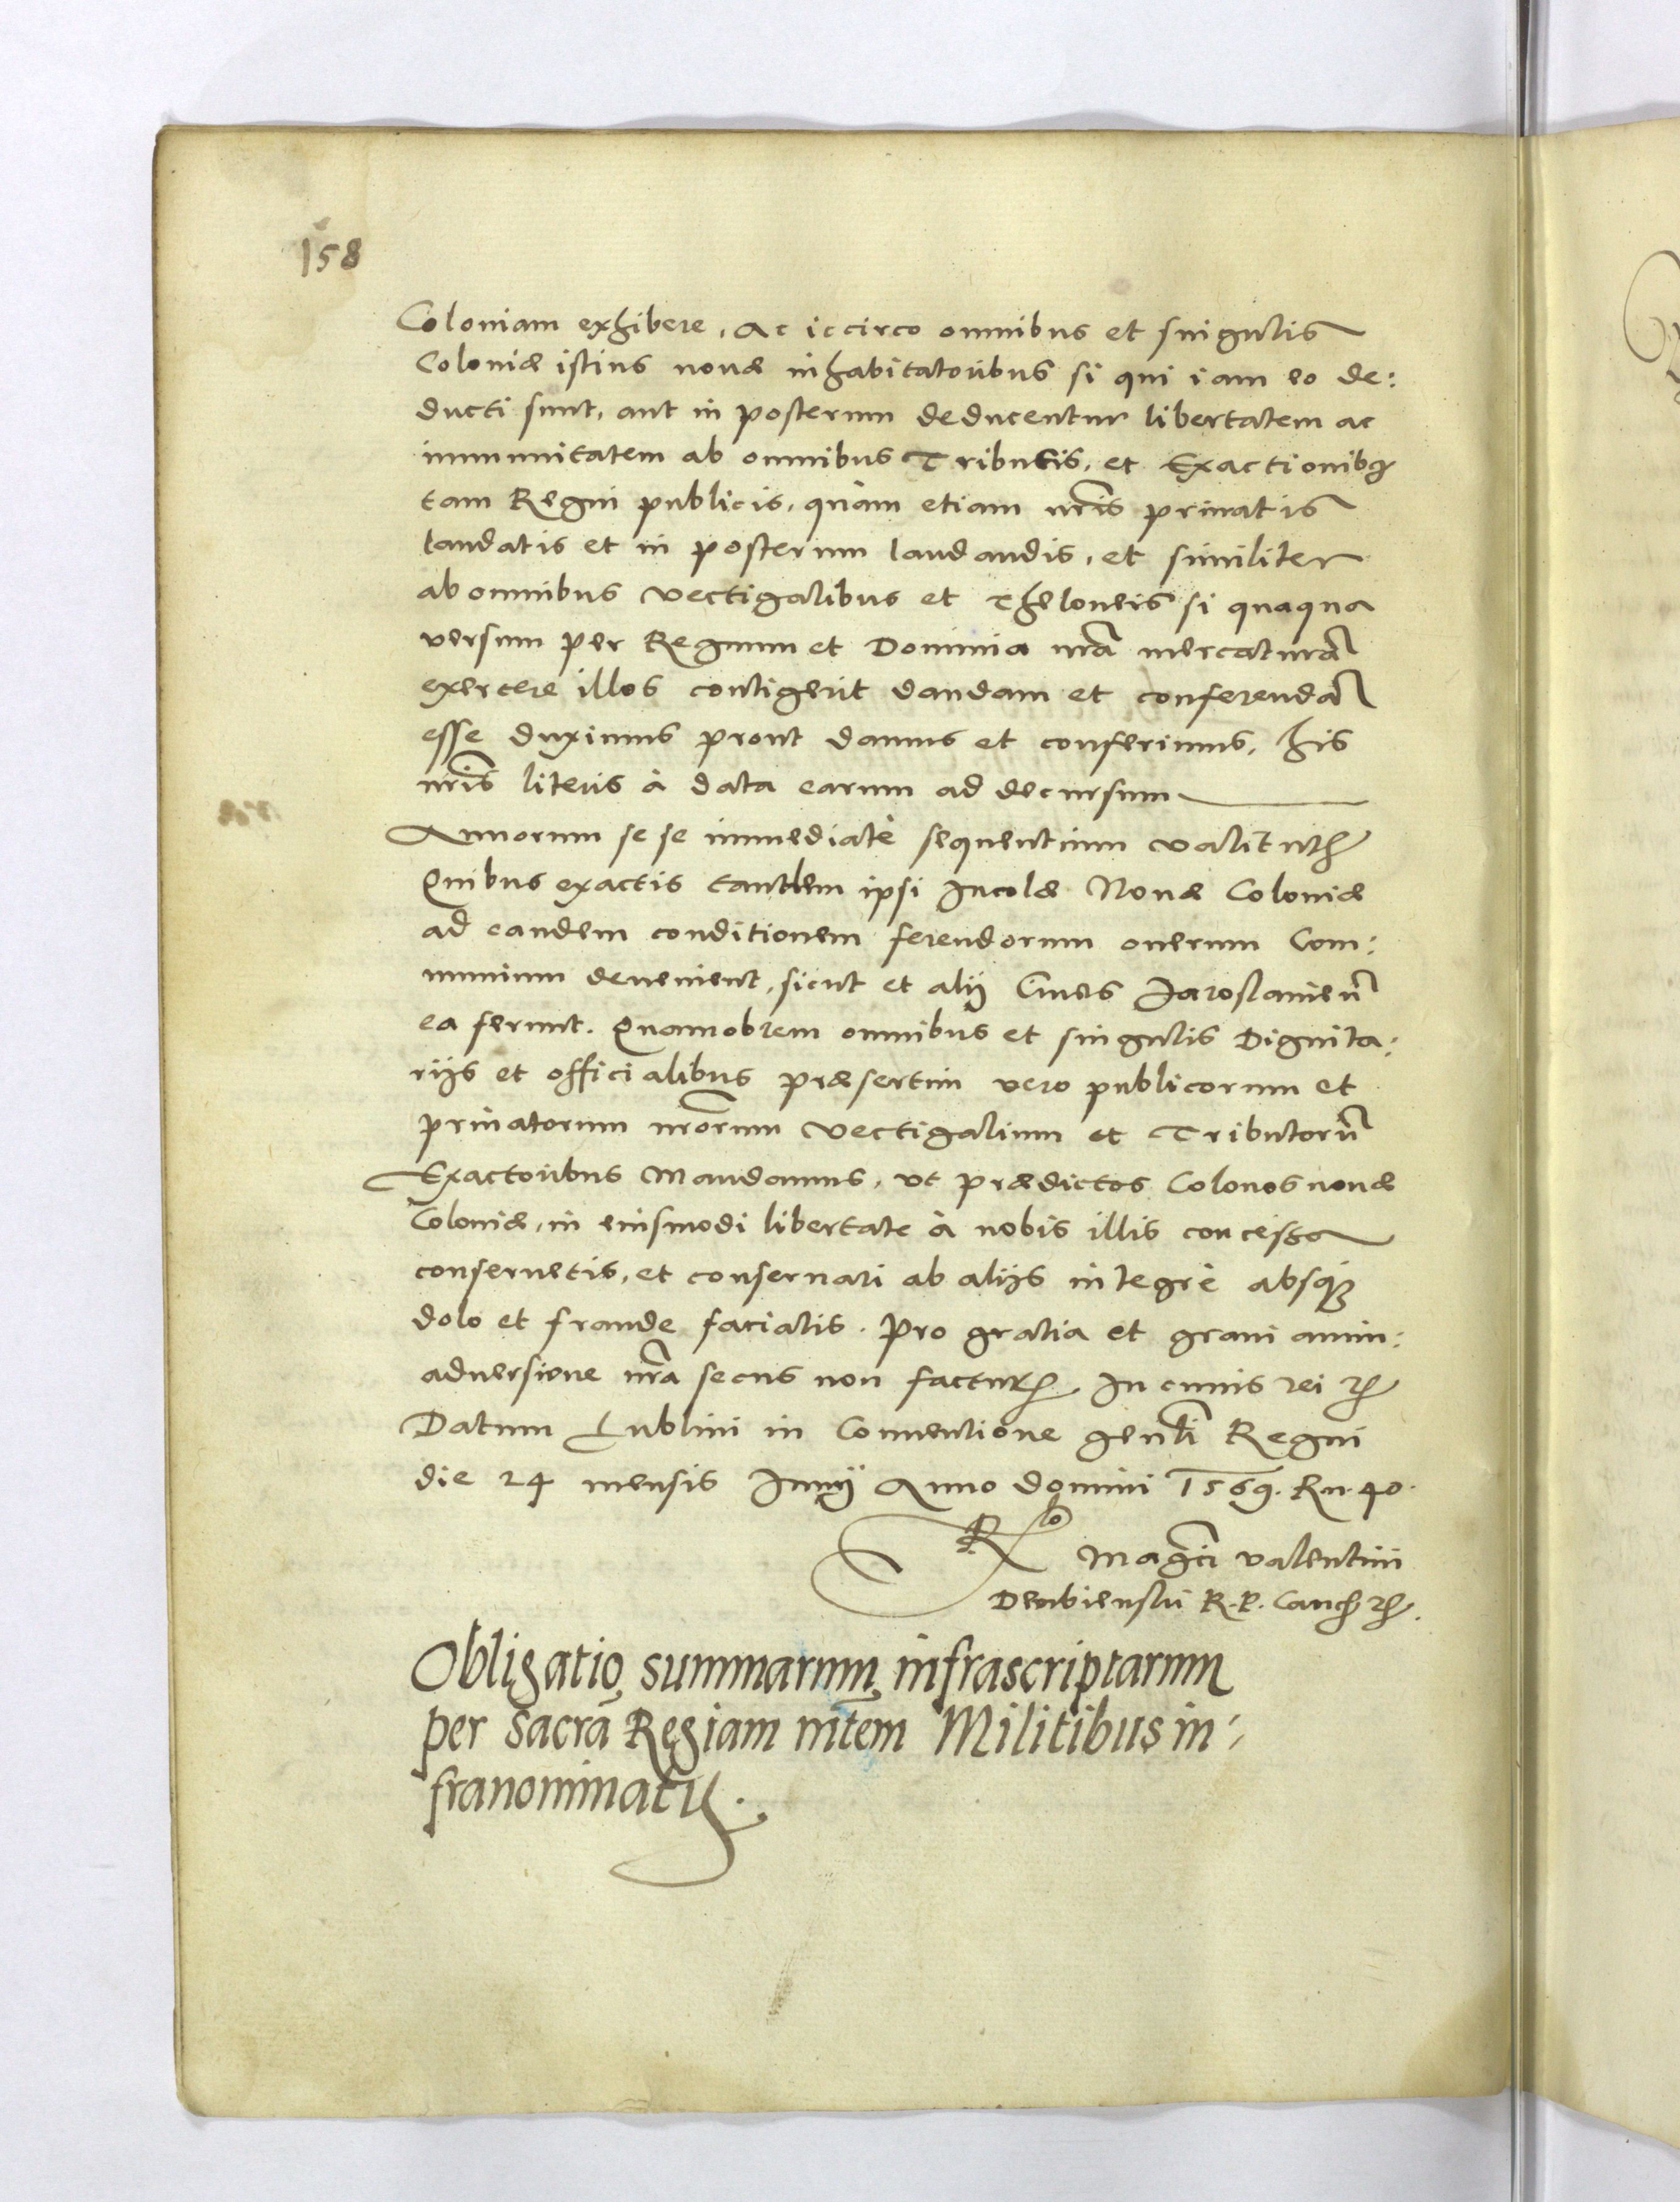 158
Coloniam exhibere, Ac iccirco omnibus et singulis
Coloniæ istius nouæ inhabitatoribus si qui iam eo de:
ducti sunt, aut in posterum deducentur libertatem ac
immunitatem ab omnibus Tributis, et Exactionibꝫ
tam Regni publicis, quàm etiam nr̃is priuatis
laudatis et in posterum laudandis, et similiter
ab omnibus vectigalibus et Theloneis si quaqua
versum per Regnum et Dominia nr̃a mercaturã
exercere illos contigerit dandam et conferendã
esse duximus prout damus et conferimus, his
nr̃is literis à data earum ad decursum
Annorum se se immediatè sequentium valitur̃
Quibus exactis tandem ipsi Incolæ Nouæ Coloniæ
ad eandem conditionem ferendorum onerum Com:
munium deuenient, sicut et alij Ciues Jaroslauieñ
ea ferunt. Quamobrem omnibus et singulis Dignita:
rijs et officialibus præsertim vero publicorum et
priuatorum nr̃orum vectigalium et Tributorũ
Exactoribus Mandamus, vt prædictos Colonos nouæ
Coloniæ, in eiusmodi libertate à nobis illis concessa
conseruetis, et conseruari ab alijs integrè absqꝫ
dolo et fraude faciatis. Pro gratia et graui anim:
aduersione nr̃a secus non factur̃ In cuius rei ꝛc̃
Datum Lublini in Conuentione gen̄li Regni
die 24 mensis Junij Anno domini 1569. Rn. 40.
R̃lo Magc̃i valentini
Dembiensky R. P. Canc̃ ꝛc̃.
Obligatio summarum infrascriptarum
per Sacrã Regiam mtem Militibus in:
franominatis.